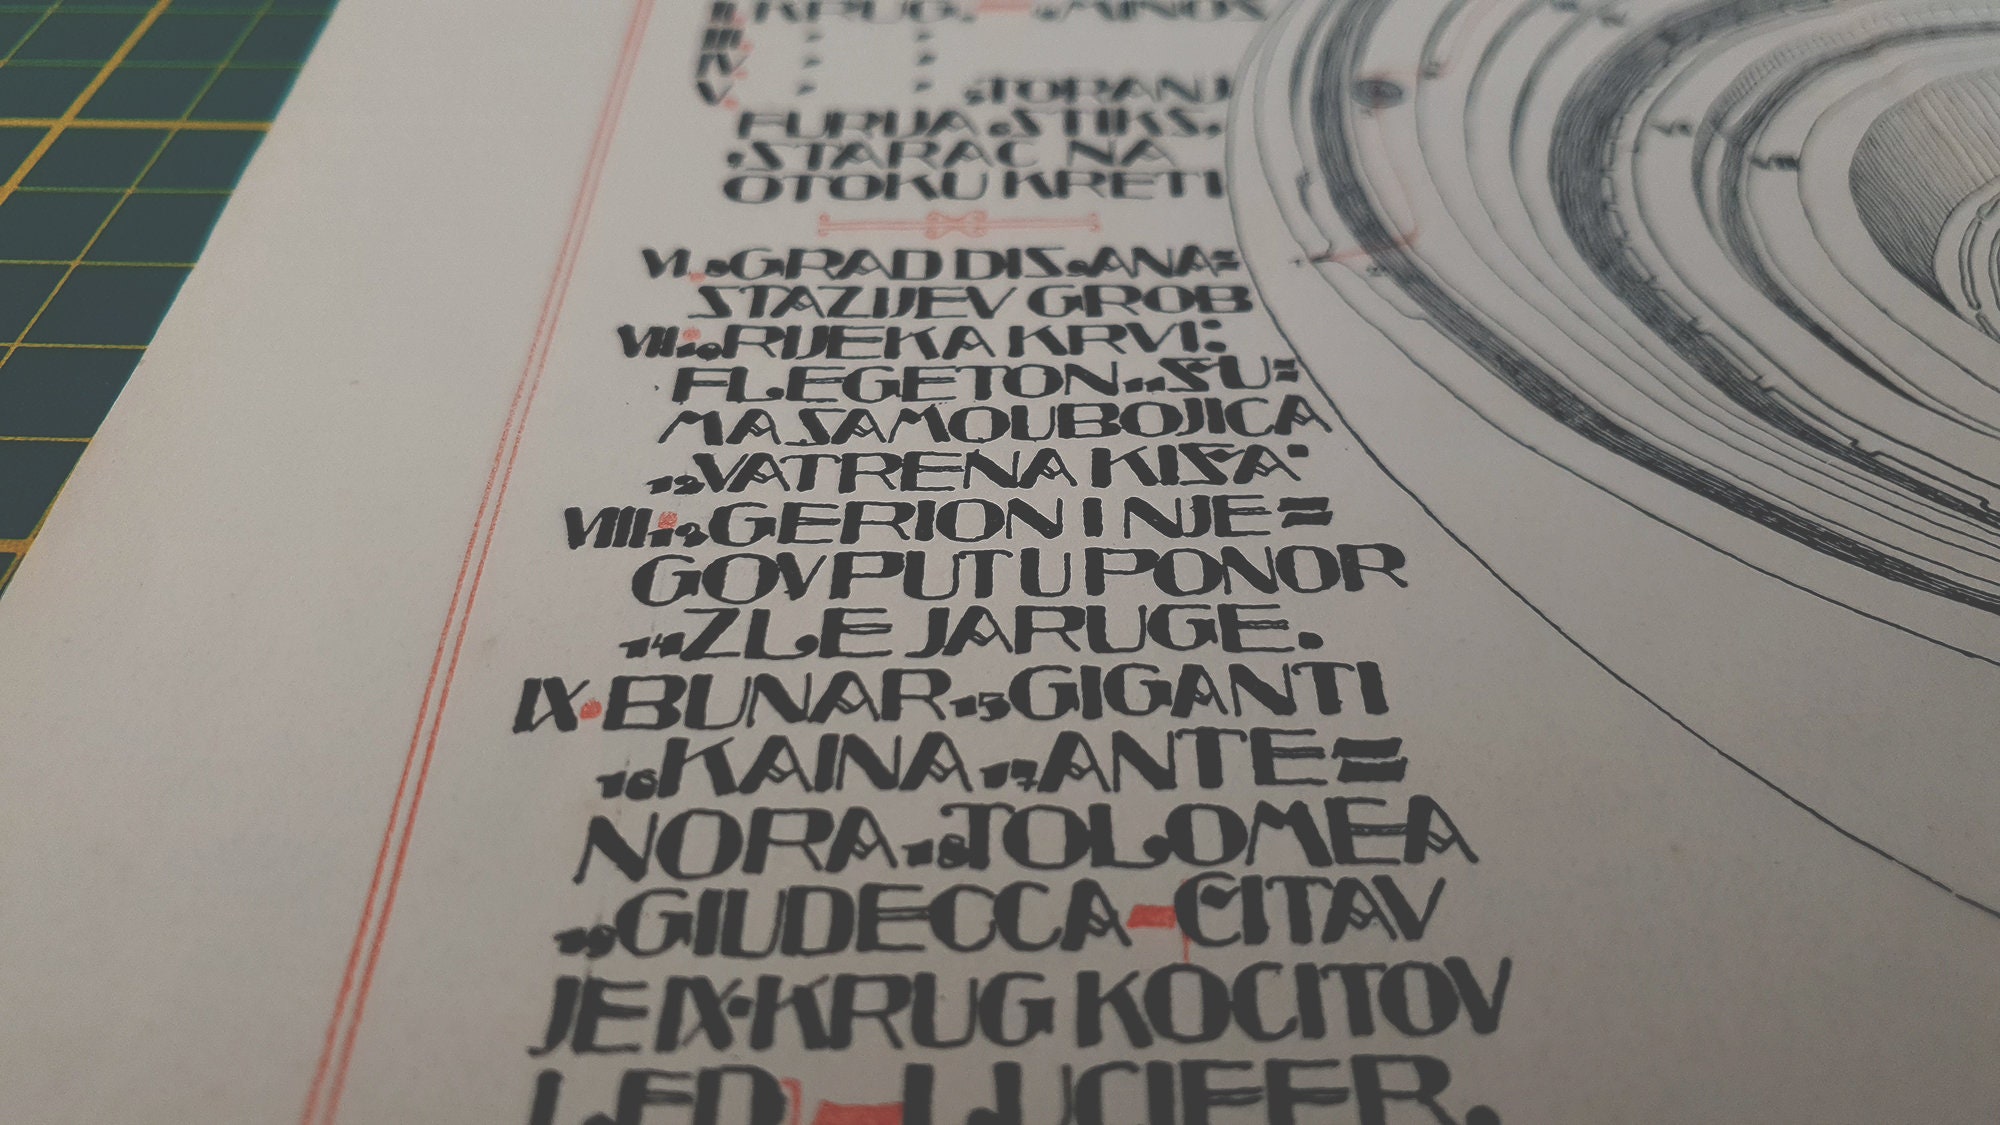 II. KRUG. — 4. MINOS
III. " "
IV. " "
V. " " 5. TORANJ
FURIJA 6. STIKS.
7. STARAC NA
OTOKU KRETI
VI. 8. GRAD DIS. 9. ANA=
STAZIJEV GROB
VII. 10. RIJEKA KRVI:
FLEGETON. 11. ŠU=
MA SAMOUBOJICA
12. VATRENA KIŠA.
VIII. 13. GERION I NJE=
GOV PUT U PONOR
14. ZLE JARUGE.
IX. BUNAR. 15. GIGANTI
16. KAINA. 17. ANTE=
NORA. 18. TOLOMEA
19. GIUDECCA — ČITAV
JE IX. KRUG KOCITOV
LED — LUCIFER.